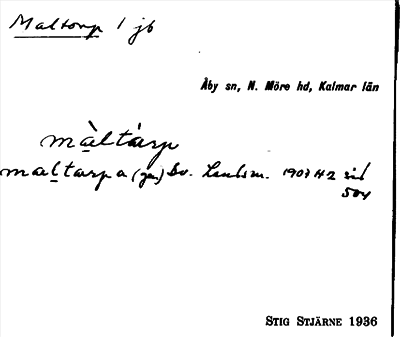 Maltorp 1 jb
Åby sn, N. Möre hd, Kalmar län
màltàrp
maltarpa (gm) Sv. Landsm. 1907 H 2 sid
504
STIG STJÄRNE 1936